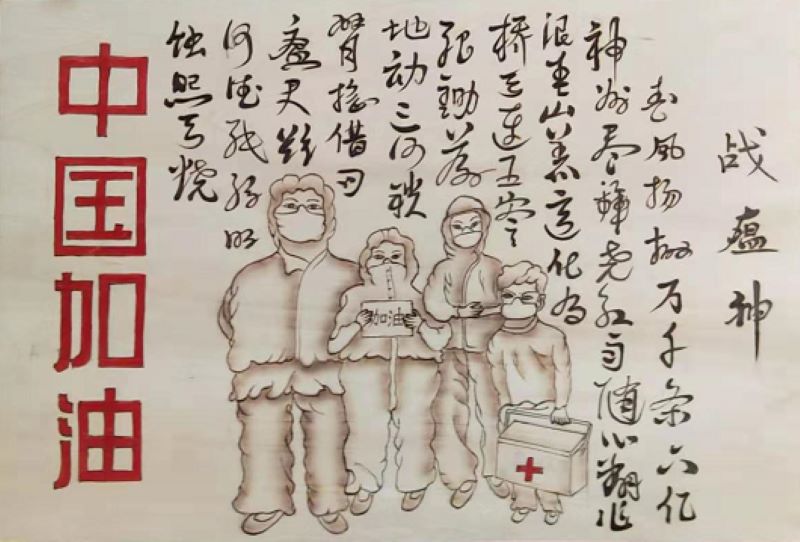 战瘟神
春风扬柳万千条六亿
神州尽舜尧红雨随心翻作
浪青山着意化为
桥天连五岭
银锄落
地动三河铁
臂摇借问
瘟君欲
何往纸船明
烛照天烧
中国加油
加油